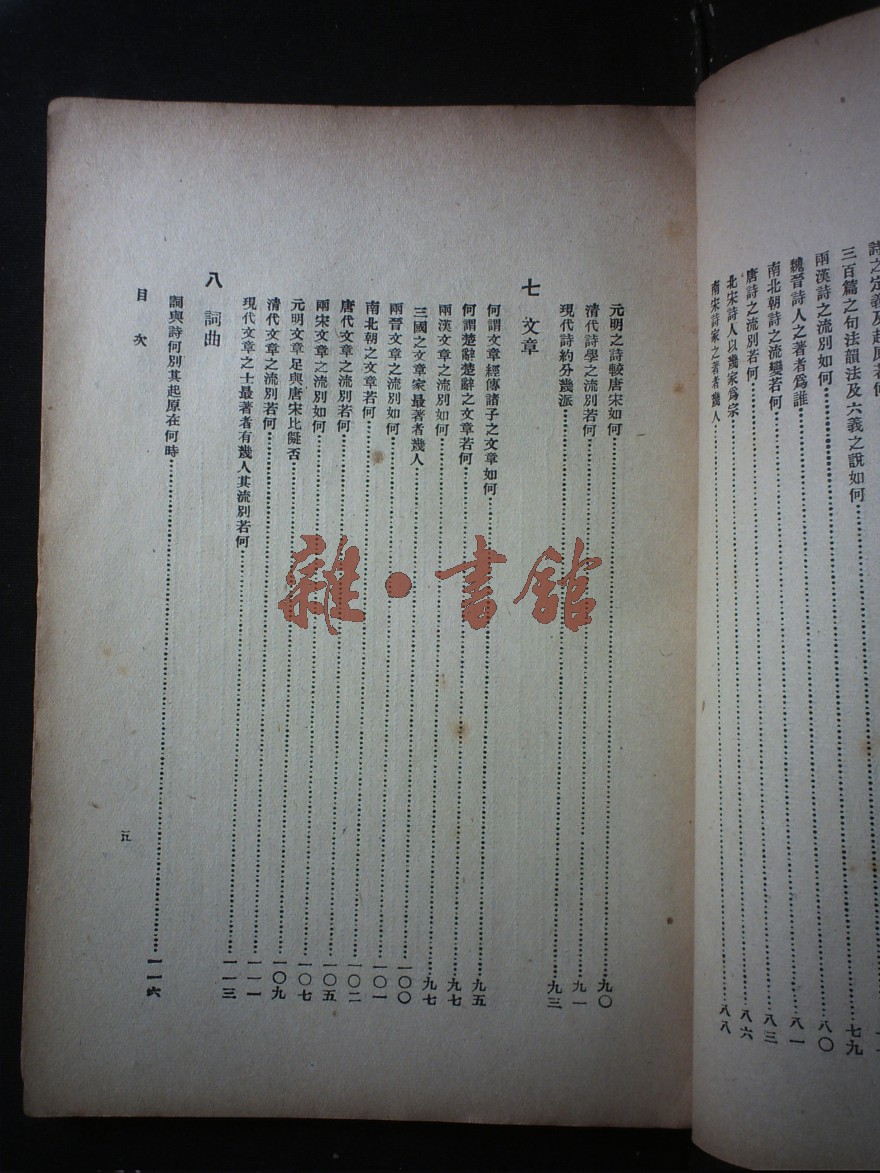 詩之定義及起原若何
三百篇之句法韻法及六義之說如何
兩漢詩之流別如何……七九
魏晉詩人之著者爲誰……八〇
南北朝詩之流變若何……八一
唐詩之流別若何……八三
北宋詩人以幾家爲宗……八六
南宋詩家之著者幾人……八八
元明之詩較唐宋如何……九〇
清代詩學之流別若何……九一
現代詩約分幾派……九三
七 文章
何謂文章經傳諸子之文章如何……九五
何謂楚辭楚辭之文章若何……九七
兩漢文章之流別如何……九七
三國之文章家最著者幾人……一〇〇
兩晉文章之流別如何……一〇一
南北朝之文章若何……一〇二
唐代文章之流別若何……一〇五
兩宋文章之流別如何……一〇七
元明文章足與唐宋比儗否……一〇九
清代文章之流別若何……一一一
現代文章之士最著者有幾人其流別若何……一一三
八 詞曲
詞與詩何別其起原在何時……一一六
目次
五
雜·書館